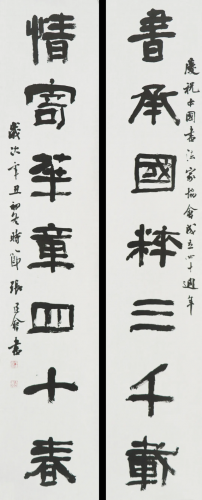 慶祝中國書法家協會成立四十週年
書承國粹三千載
情寄華章四十春
歲次辛丑初冬時節 張 會書